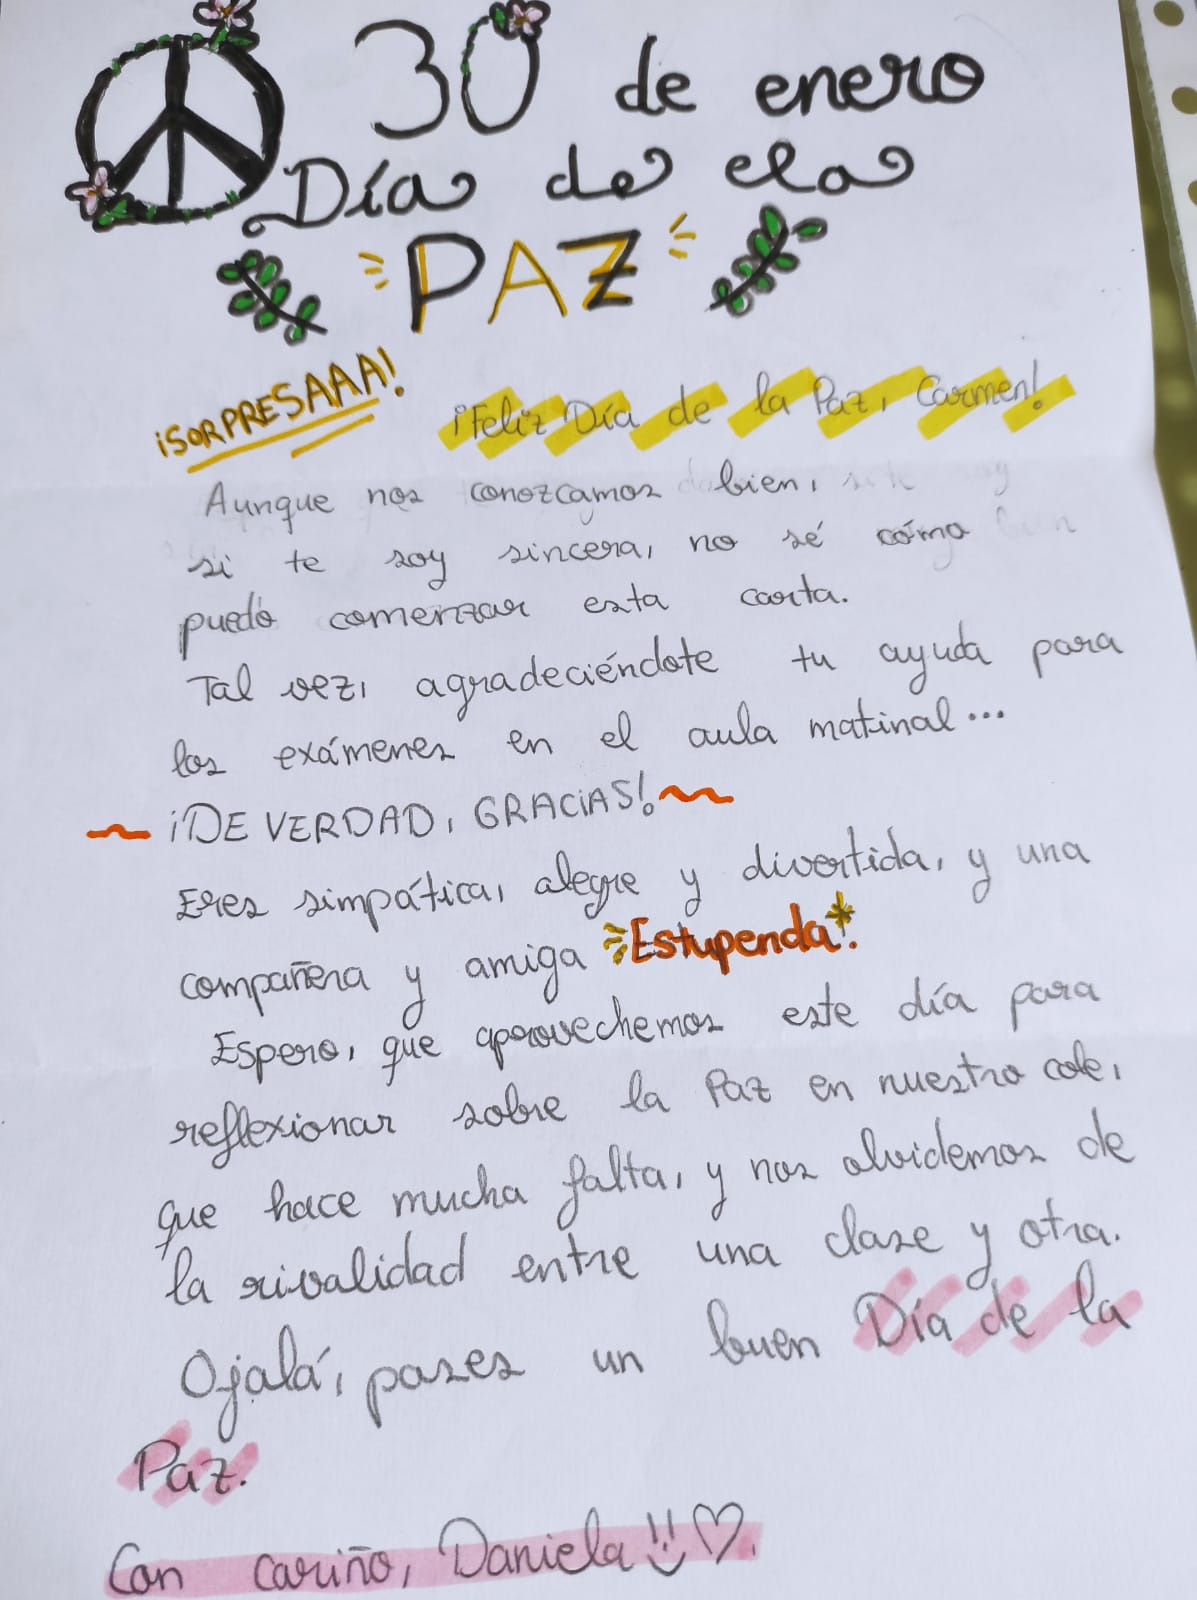 30 de enero
Día de la
PAZ
¡SORPRESAAA!
¡Feliz Día de la Paz, Carmen!
Aunque nos conozcamos bien,
si te soy sincera, no sé cómo
puedo comenzar esta carta.
Tal vez, agradeciéndote tu ayuda para
los exámenes en el aula matinal...
¡DE VERDAD, GRACIAS!
Eres simpática, alegre y divertida, y una
compañera y amiga Estupenda!.
Espero, que aprovechemos este día para
reflexionar sobre la Paz en nuestro cole,
que hace mucha falta, y nos olvidemos de
la rivalidad entre una clase y otra.
Ojalá, pases un buen Día de la
Paz.
Con cariño, Daniela!! ♡.